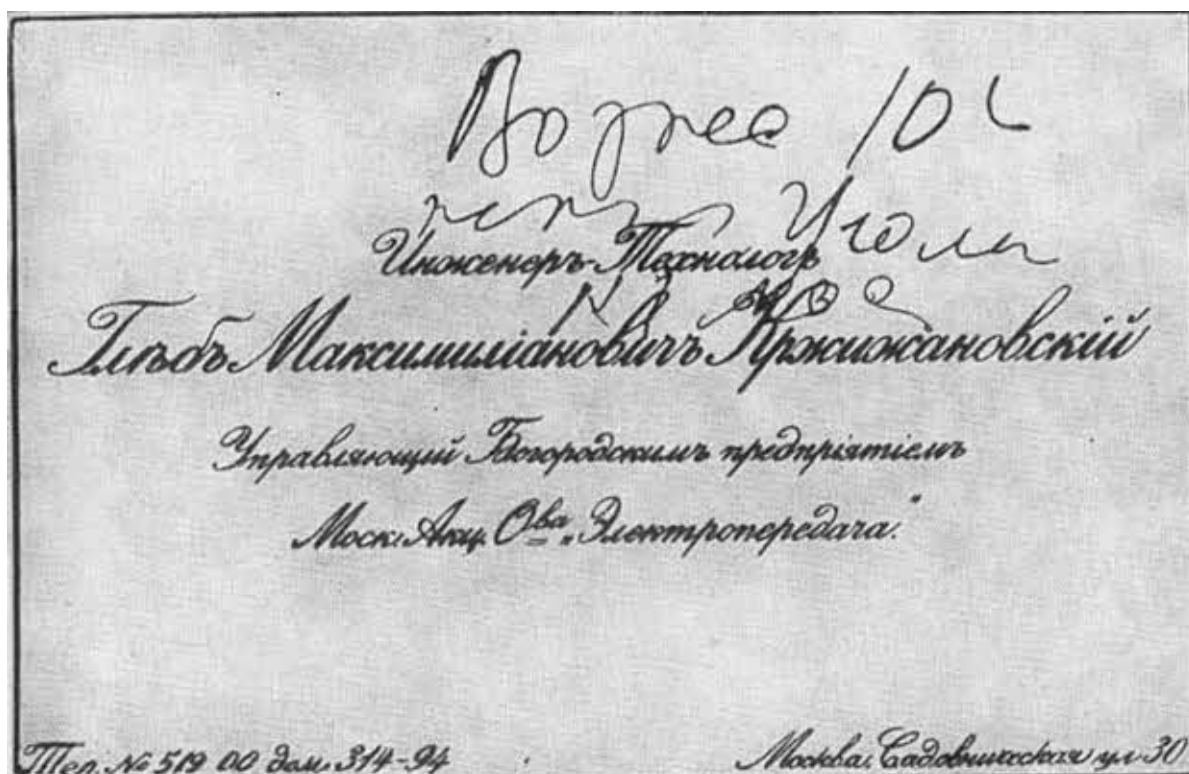 10
Инженеръ-Технологъ
Глѣбъ Максимиліановичъ Кржижановскій
Управляющій Богородскимъ предпріятіемъ
Моск. Акц. О-ва „Электропередача“
Тел. № 519 00 дом. 314-94
Москва, Садовническая ул 30